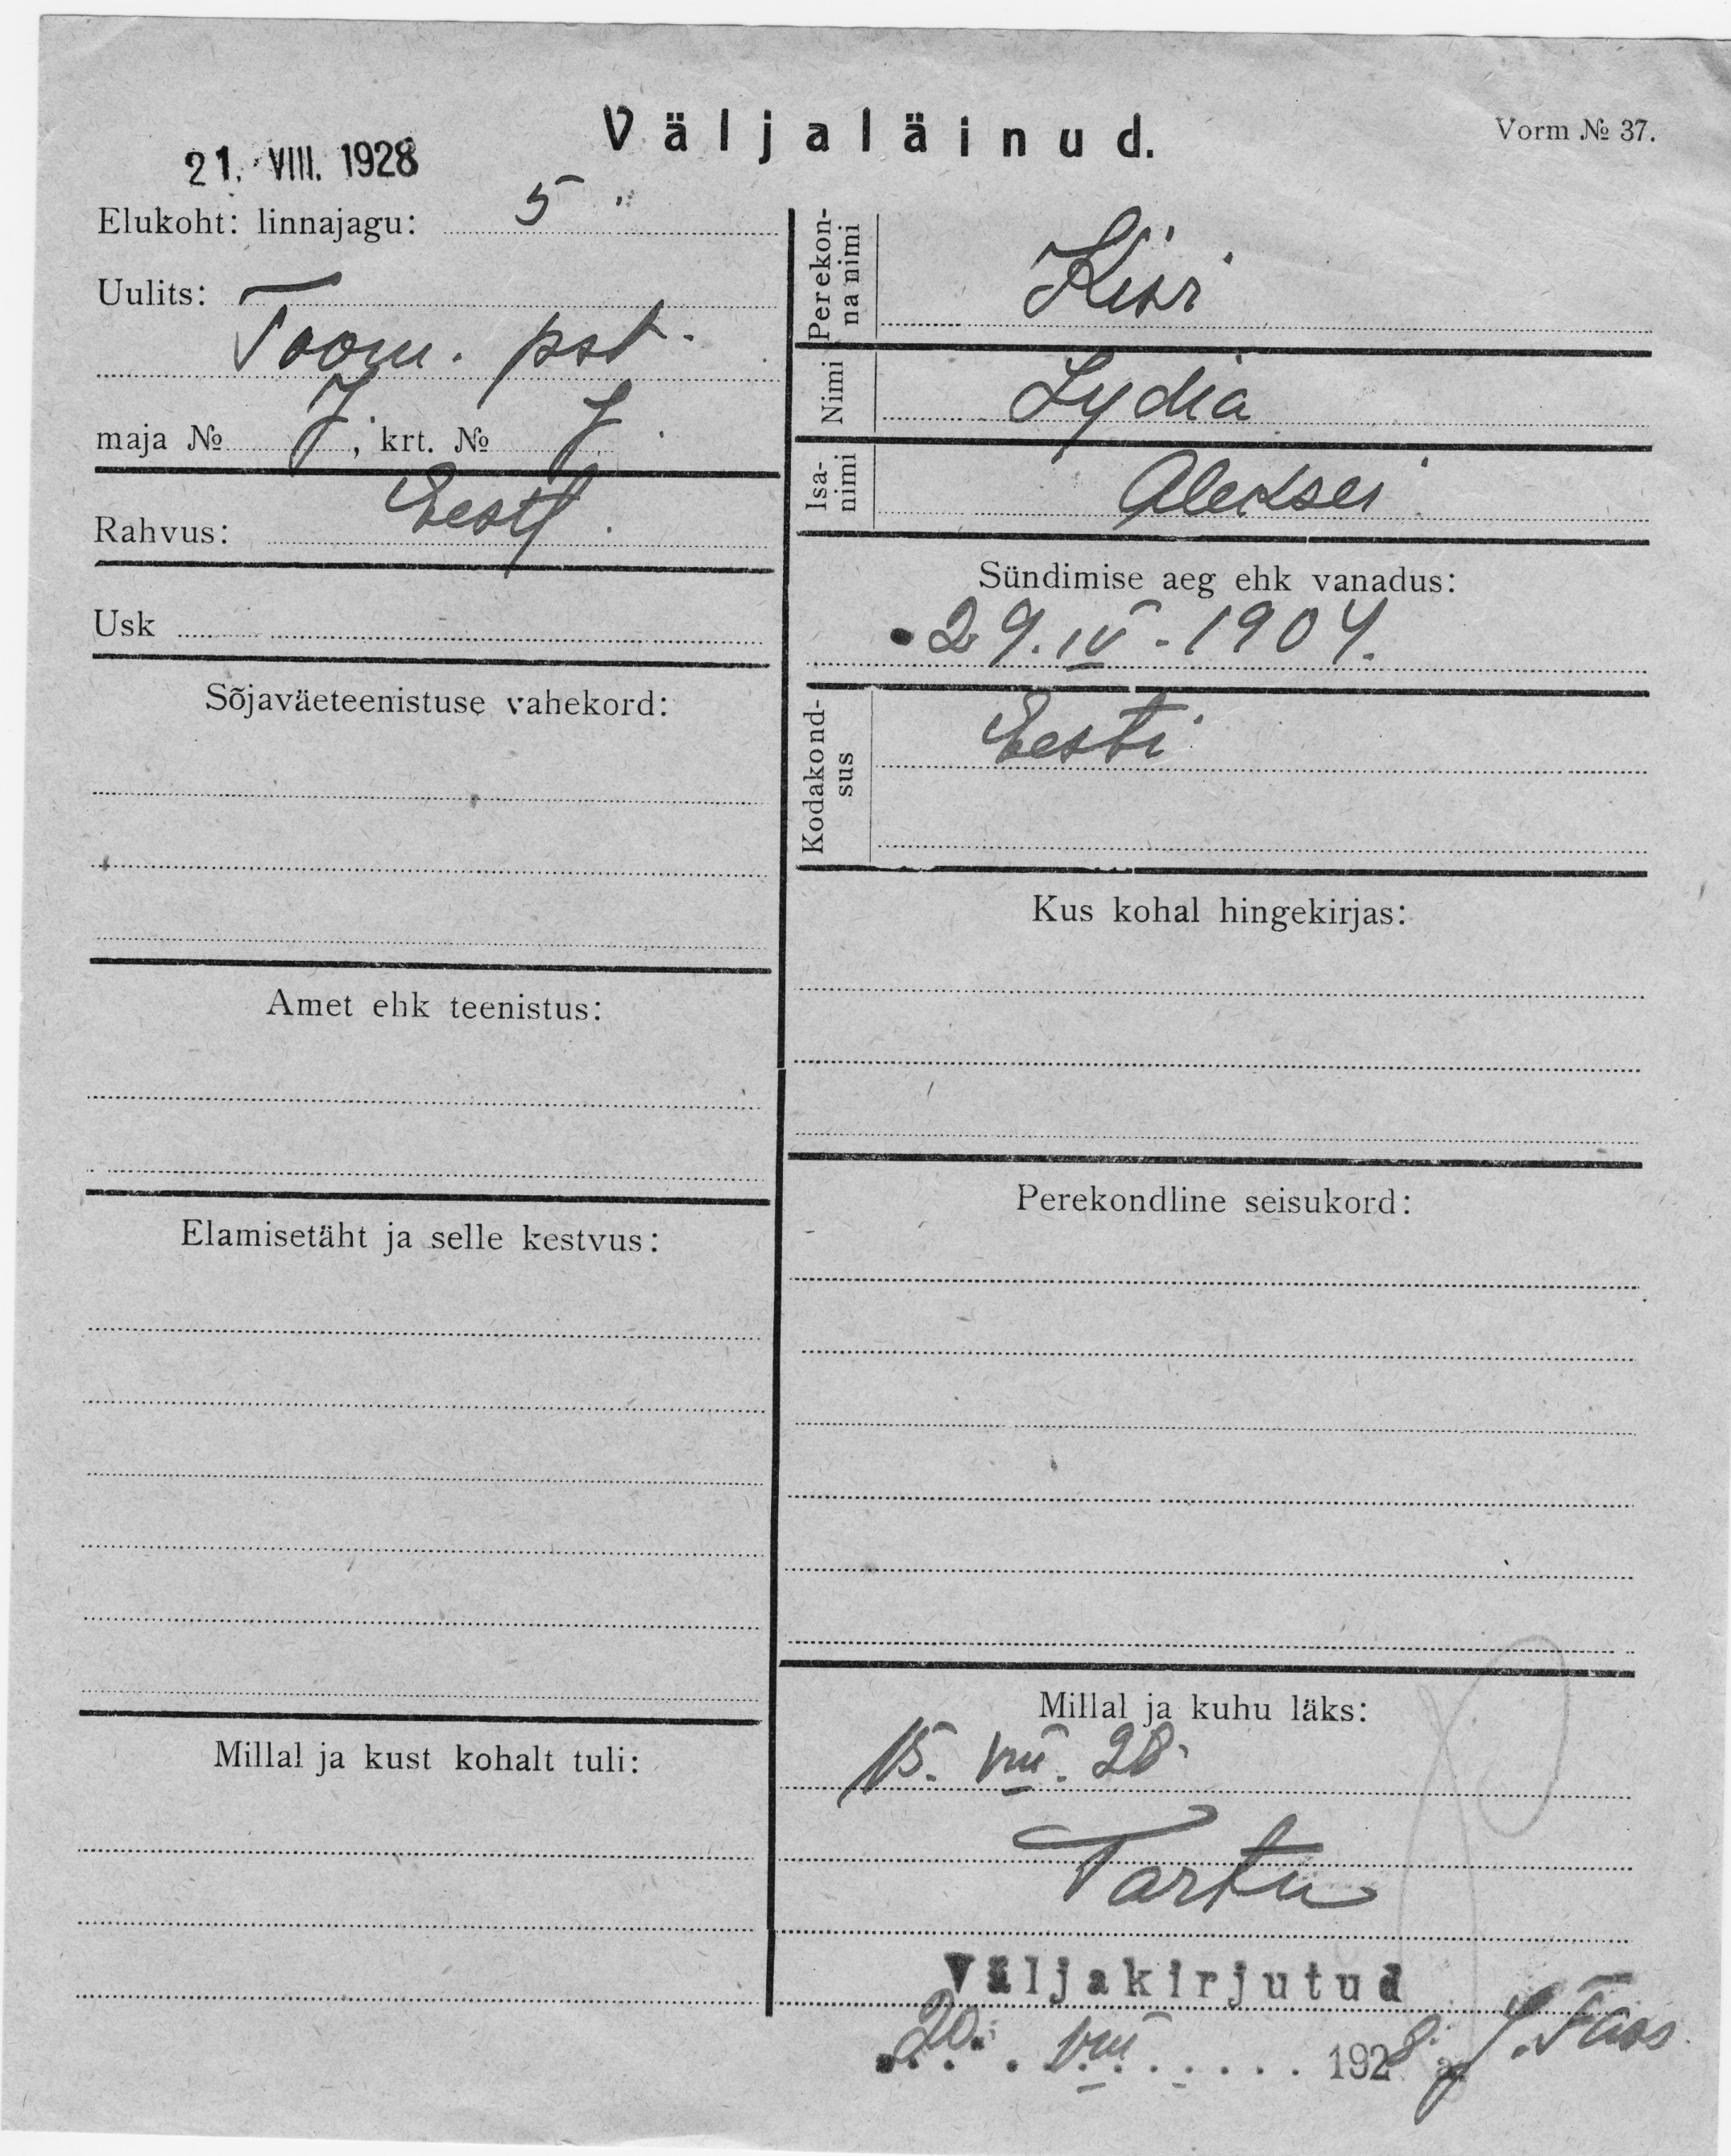 Väljaläinud.
Vorm № 37.
21. VIII. 1928
Elukoht: linnajagu: 5
Uulits:
Toom. pst.
maja № 7, krt. № 7.
Rahvus: Eesti
Usk
Sõjaväeteenistuse vahekord:
Amet ehk teenistus:
Elamisetäht ja selle kestvus:
Millal ja kust kohalt tuli:
Perekon-
na nimi
Nimi Lydia
Isa-
nimi Aleksei
Sündimise aeg ehk vanadus:
29. IV. 1904.
Kodakond-
sus Eesti
Kus kohal hingekirjas:
Perekondline seisukord:
Millal ja kuhu läks:
15. VIII. 28.
Tartu
Väljakirjutud
20. VIII 1928 a.